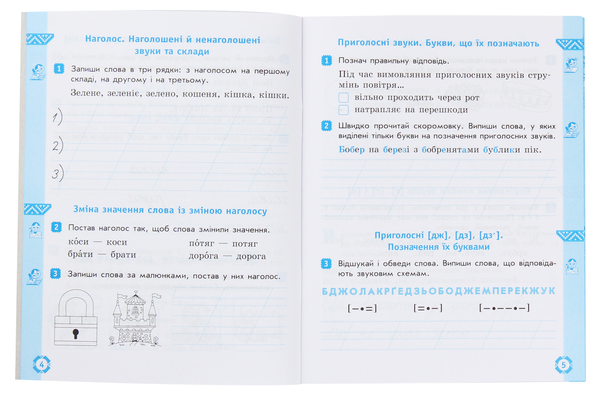 Наголос. Наголошені й ненаголошені
звуки та склади
1 Запиши слова в три рядки: з наголосом на першому
складі, на другому і на третьому.
Зелене, зеленіє, зелено, кошеня, кішка, кішки.
1)
2)
3)
Зміна значення слова із зміною наголосу
2 Постав наголос так, щоб слова змінили значення.
ко́си — коси по́тяг — потяг
бра́ти — брати доро́га — дорога
3 Запиши слова за малюнками, постав у них наголос.
4
Приголосні звуки. Букви, що їх позначають
1 Познач правильну відповідь.
Під час вимовляння приголосних звуків стру-
мінь повітря...
вільно проходить через рот
натрапляє на перешкоди
2 Швидко прочитай скоромовку. Випиши слова, у яких
виділені тільки букви на позначення приголосних звуків.
Бобер на березі з бобренятами бублики пік.
Приголосні [дж], [дз], [дз'].
Позначення їх буквами
3 Відшукай і обведи слова. Випиши слова, що відповіда-
ють звуковим схемам.
БДЖОЛАКРГЕДЗЬОБОДЖЕМПЕРЕКЖУК
[–•=] [=•–] [–•––•–]
5